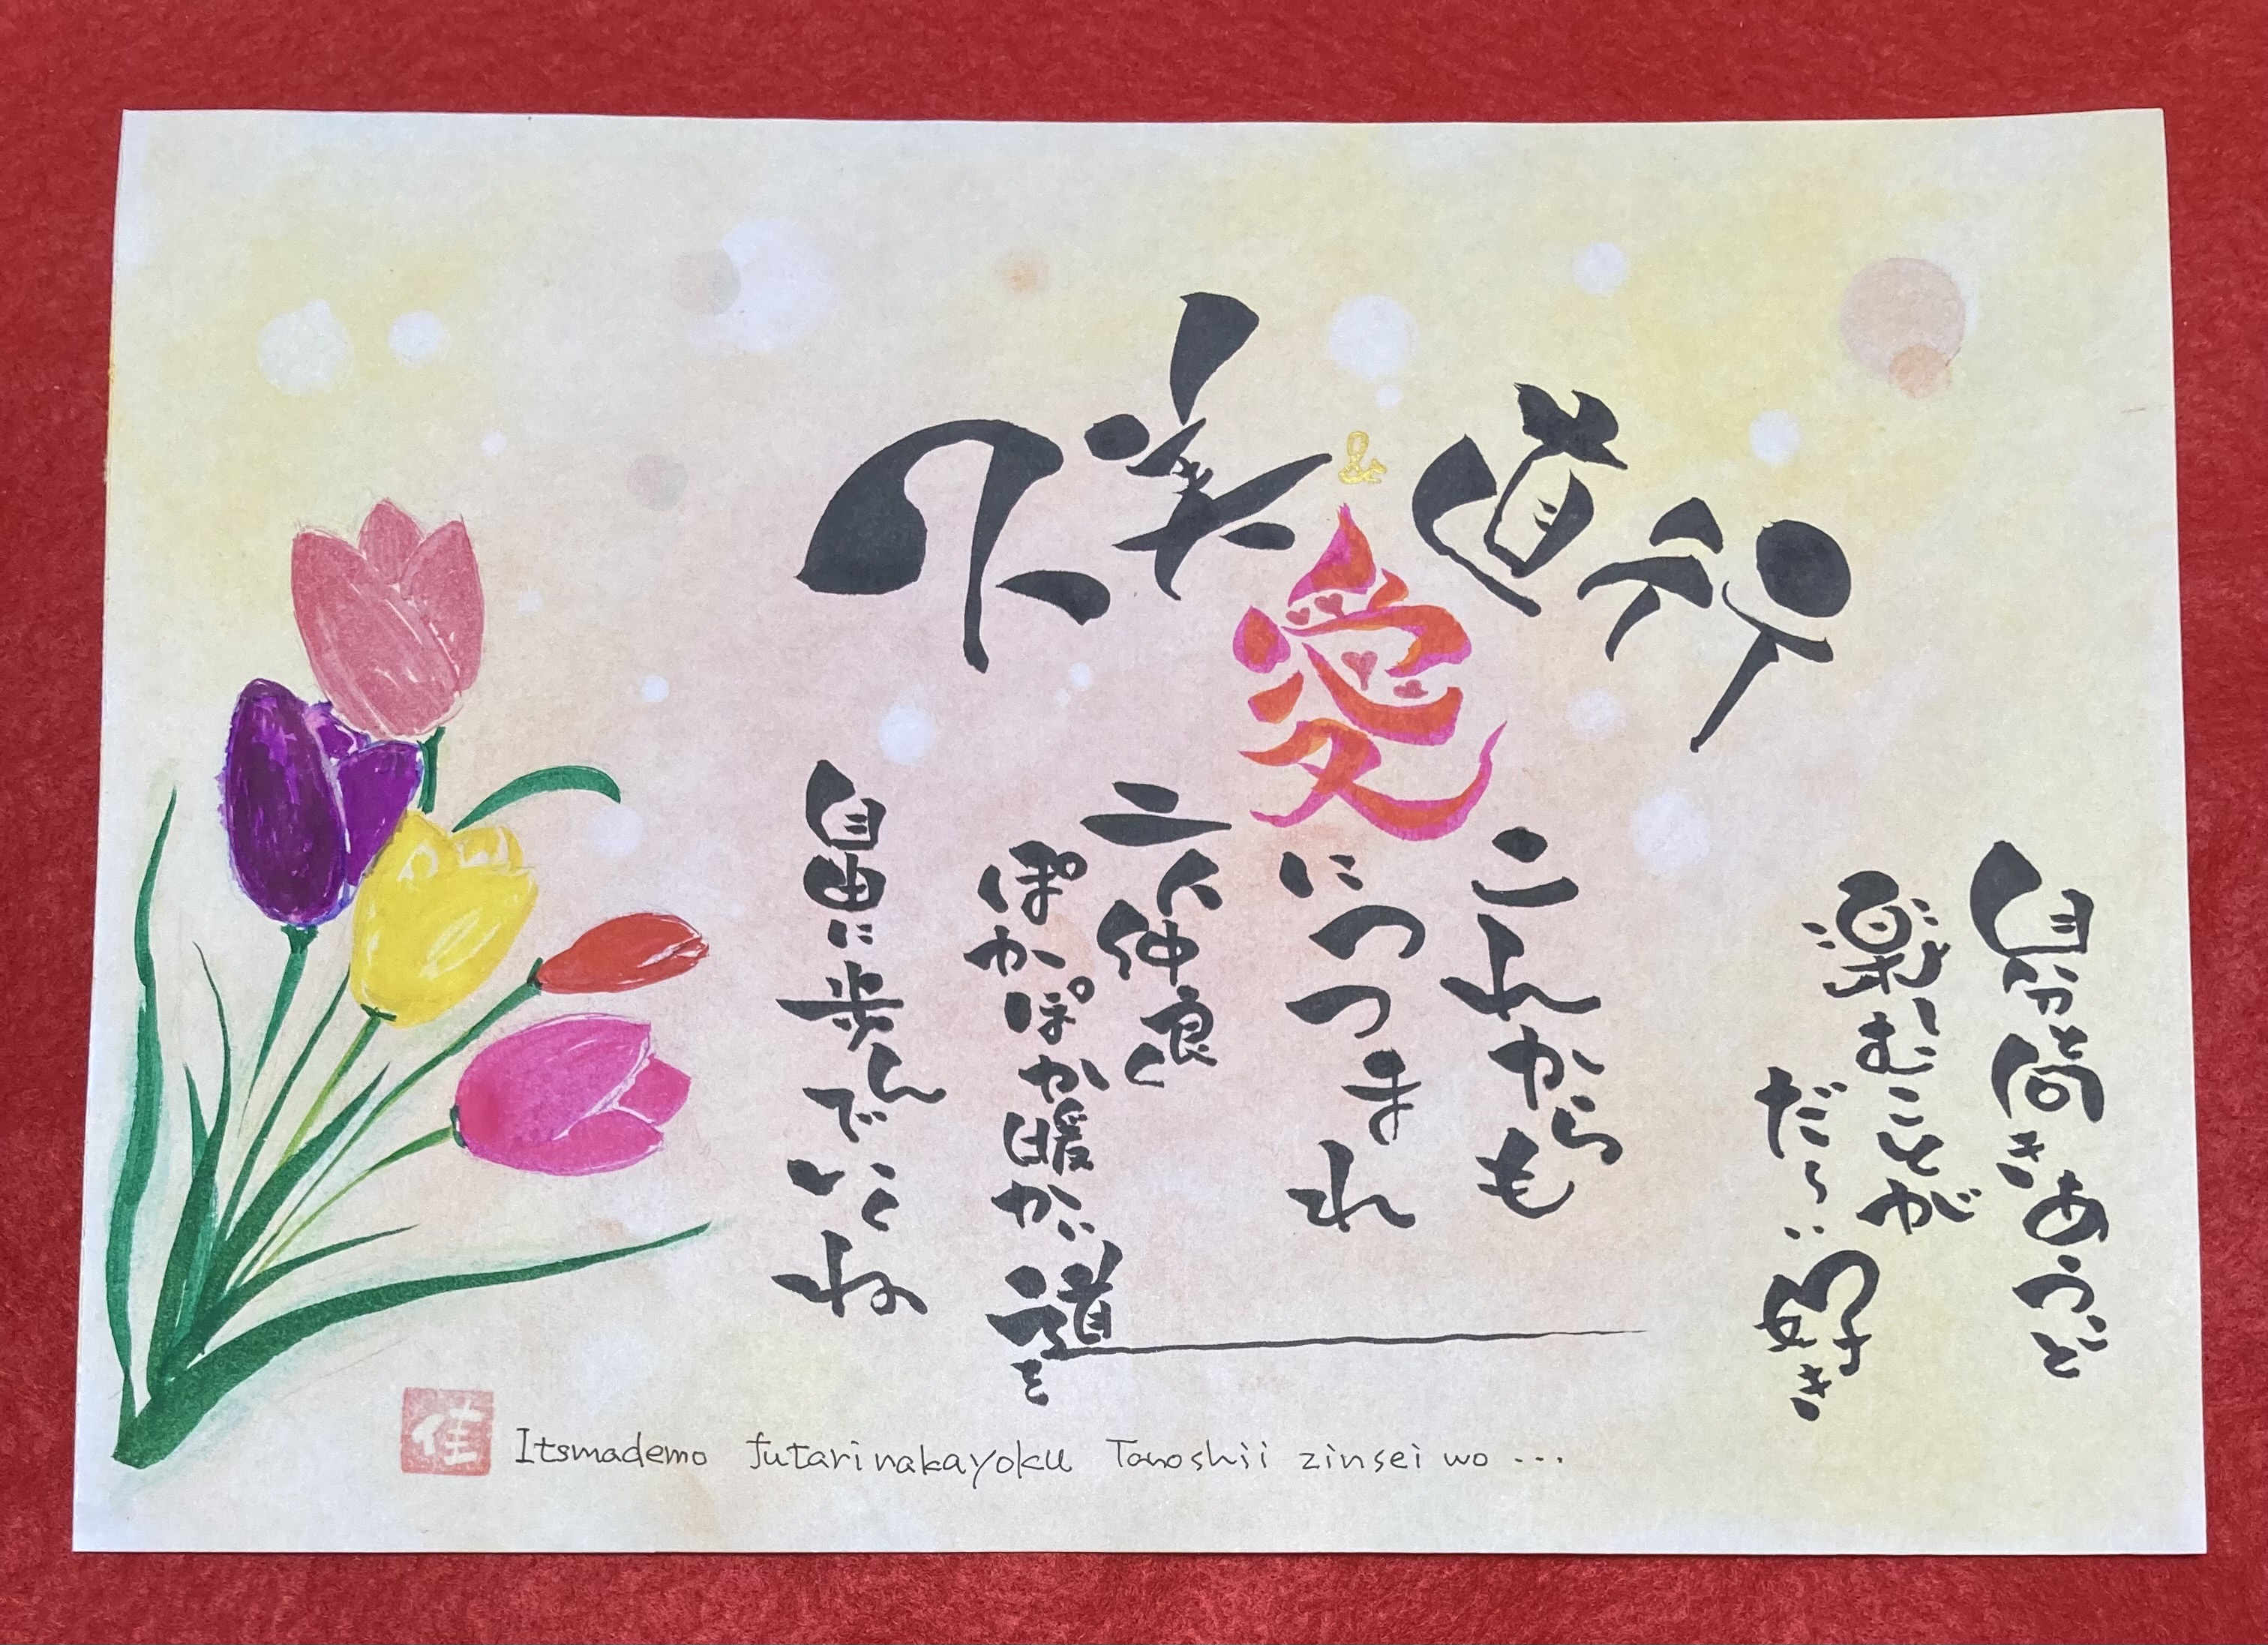 美 & 直行
自分と向きあうこと
楽しむことが
だ〜い好き
これからも
愛
につつまれ
二人仲良く
ぽかぽか暖かい道を
自由に歩んでいくね
佳
Itsmademo futarinakayoku Tanoshii zinsei wo ...